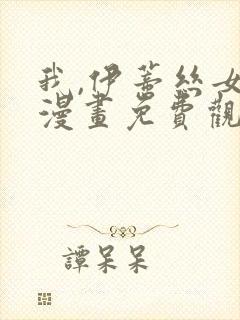 我,伊蒂絲女
漫畫免費觀
譚呆呆